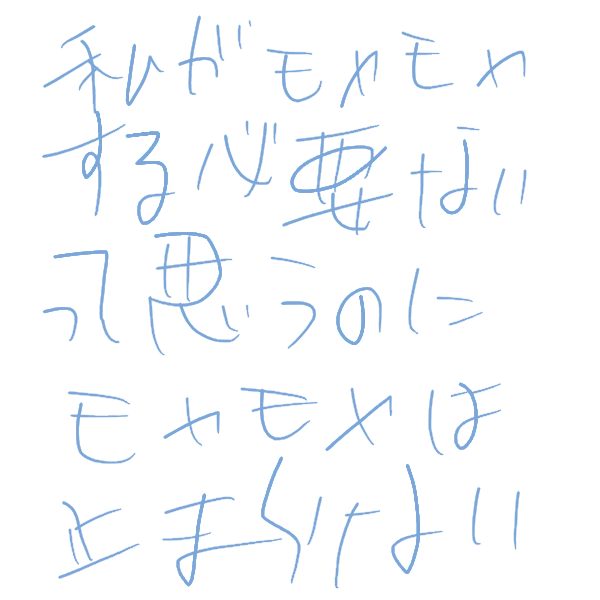 私がモヤモヤ
する必要ない
って思うのに
モヤモヤは
止まらない